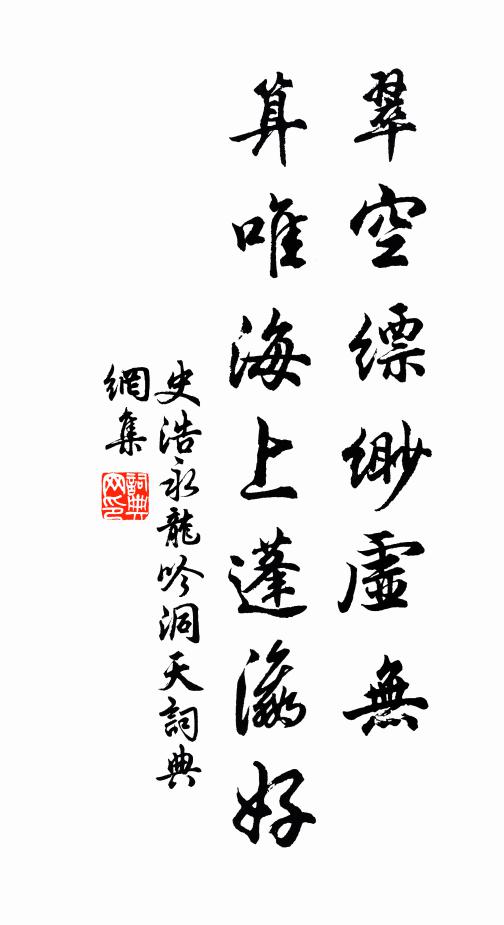 翠空縹緲虛無
算唯海上蓬瀛好
史浩永龍吟洞天詞典
網集
詞典
网印